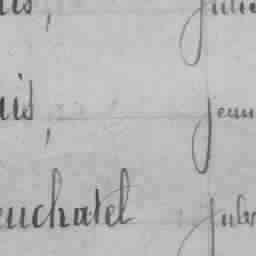 is, juli
uis, jean
euchatel jule